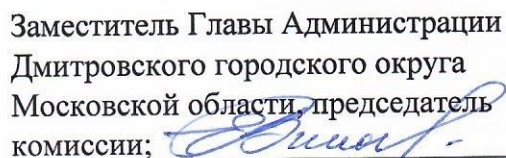 Заместитель Главы Администрации
Дмитровского городского округа
Московской области, председатель
комиссии;